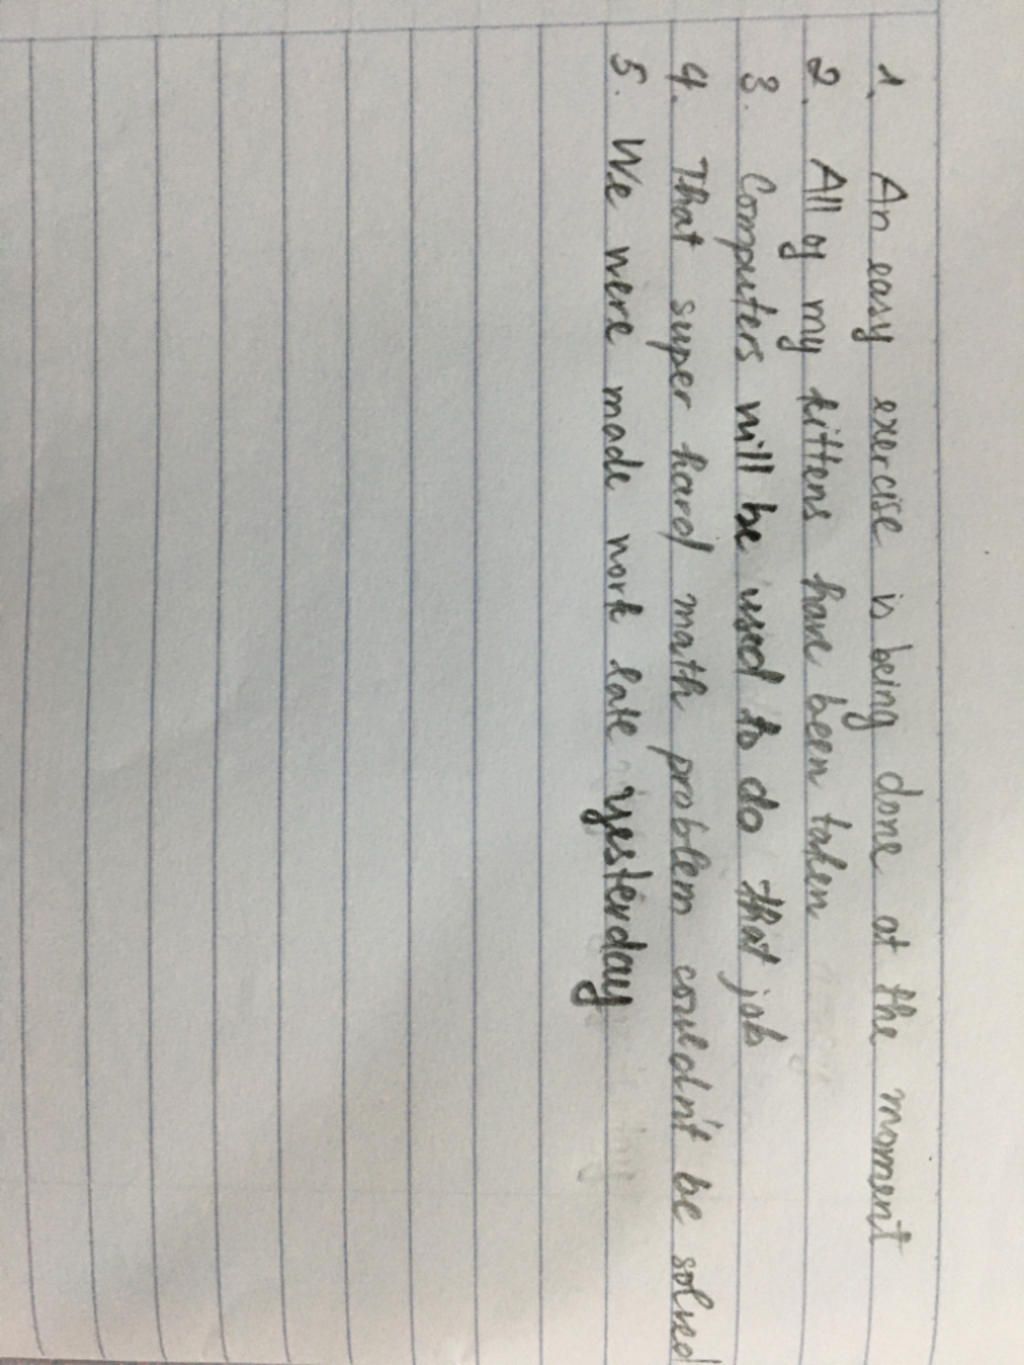 1. An easy exercise is being done at the moment
2. All of my kittens have been taken
3. Computers will be used to do that job
4. That super hard math problem couldn't be solved
5. We were made work late yesterday